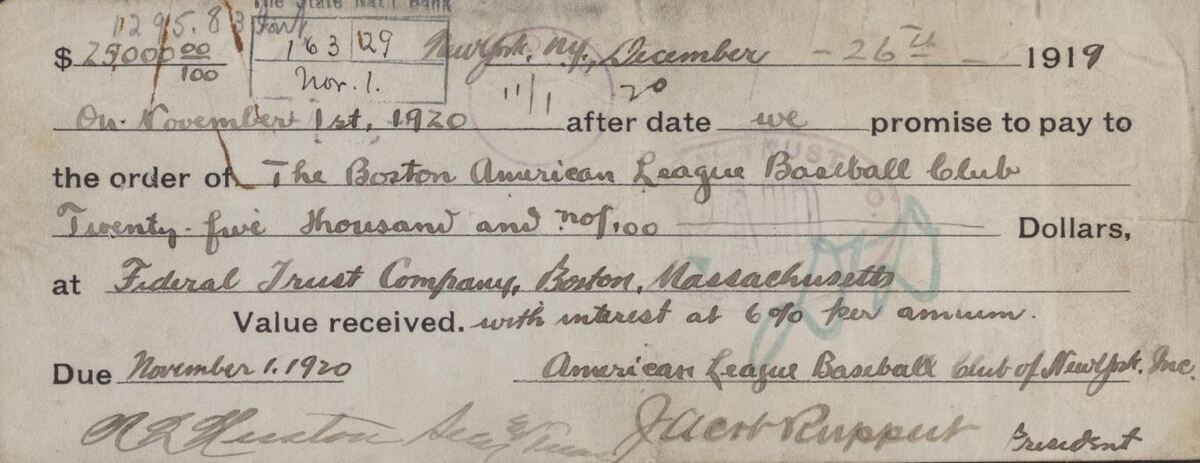 The State Nat'l Bank
1295.83
$ 25,000 00/100 163 129 New York, Ny., December - 26th - 1919
Nov. 1. 11/1 20
On November 1st, 1920 after date we promise to pay to
the order of The Boston American League Baseball Club
Twenty-five Thousand and no/100 Dollars,
at Federal Trust Company, Boston, Massachusetts
Value received. with interest at 6% per annum.
Due November 1. 1920 American League Baseball Club of New York. Inc.
Huston Jacob Ruppert President